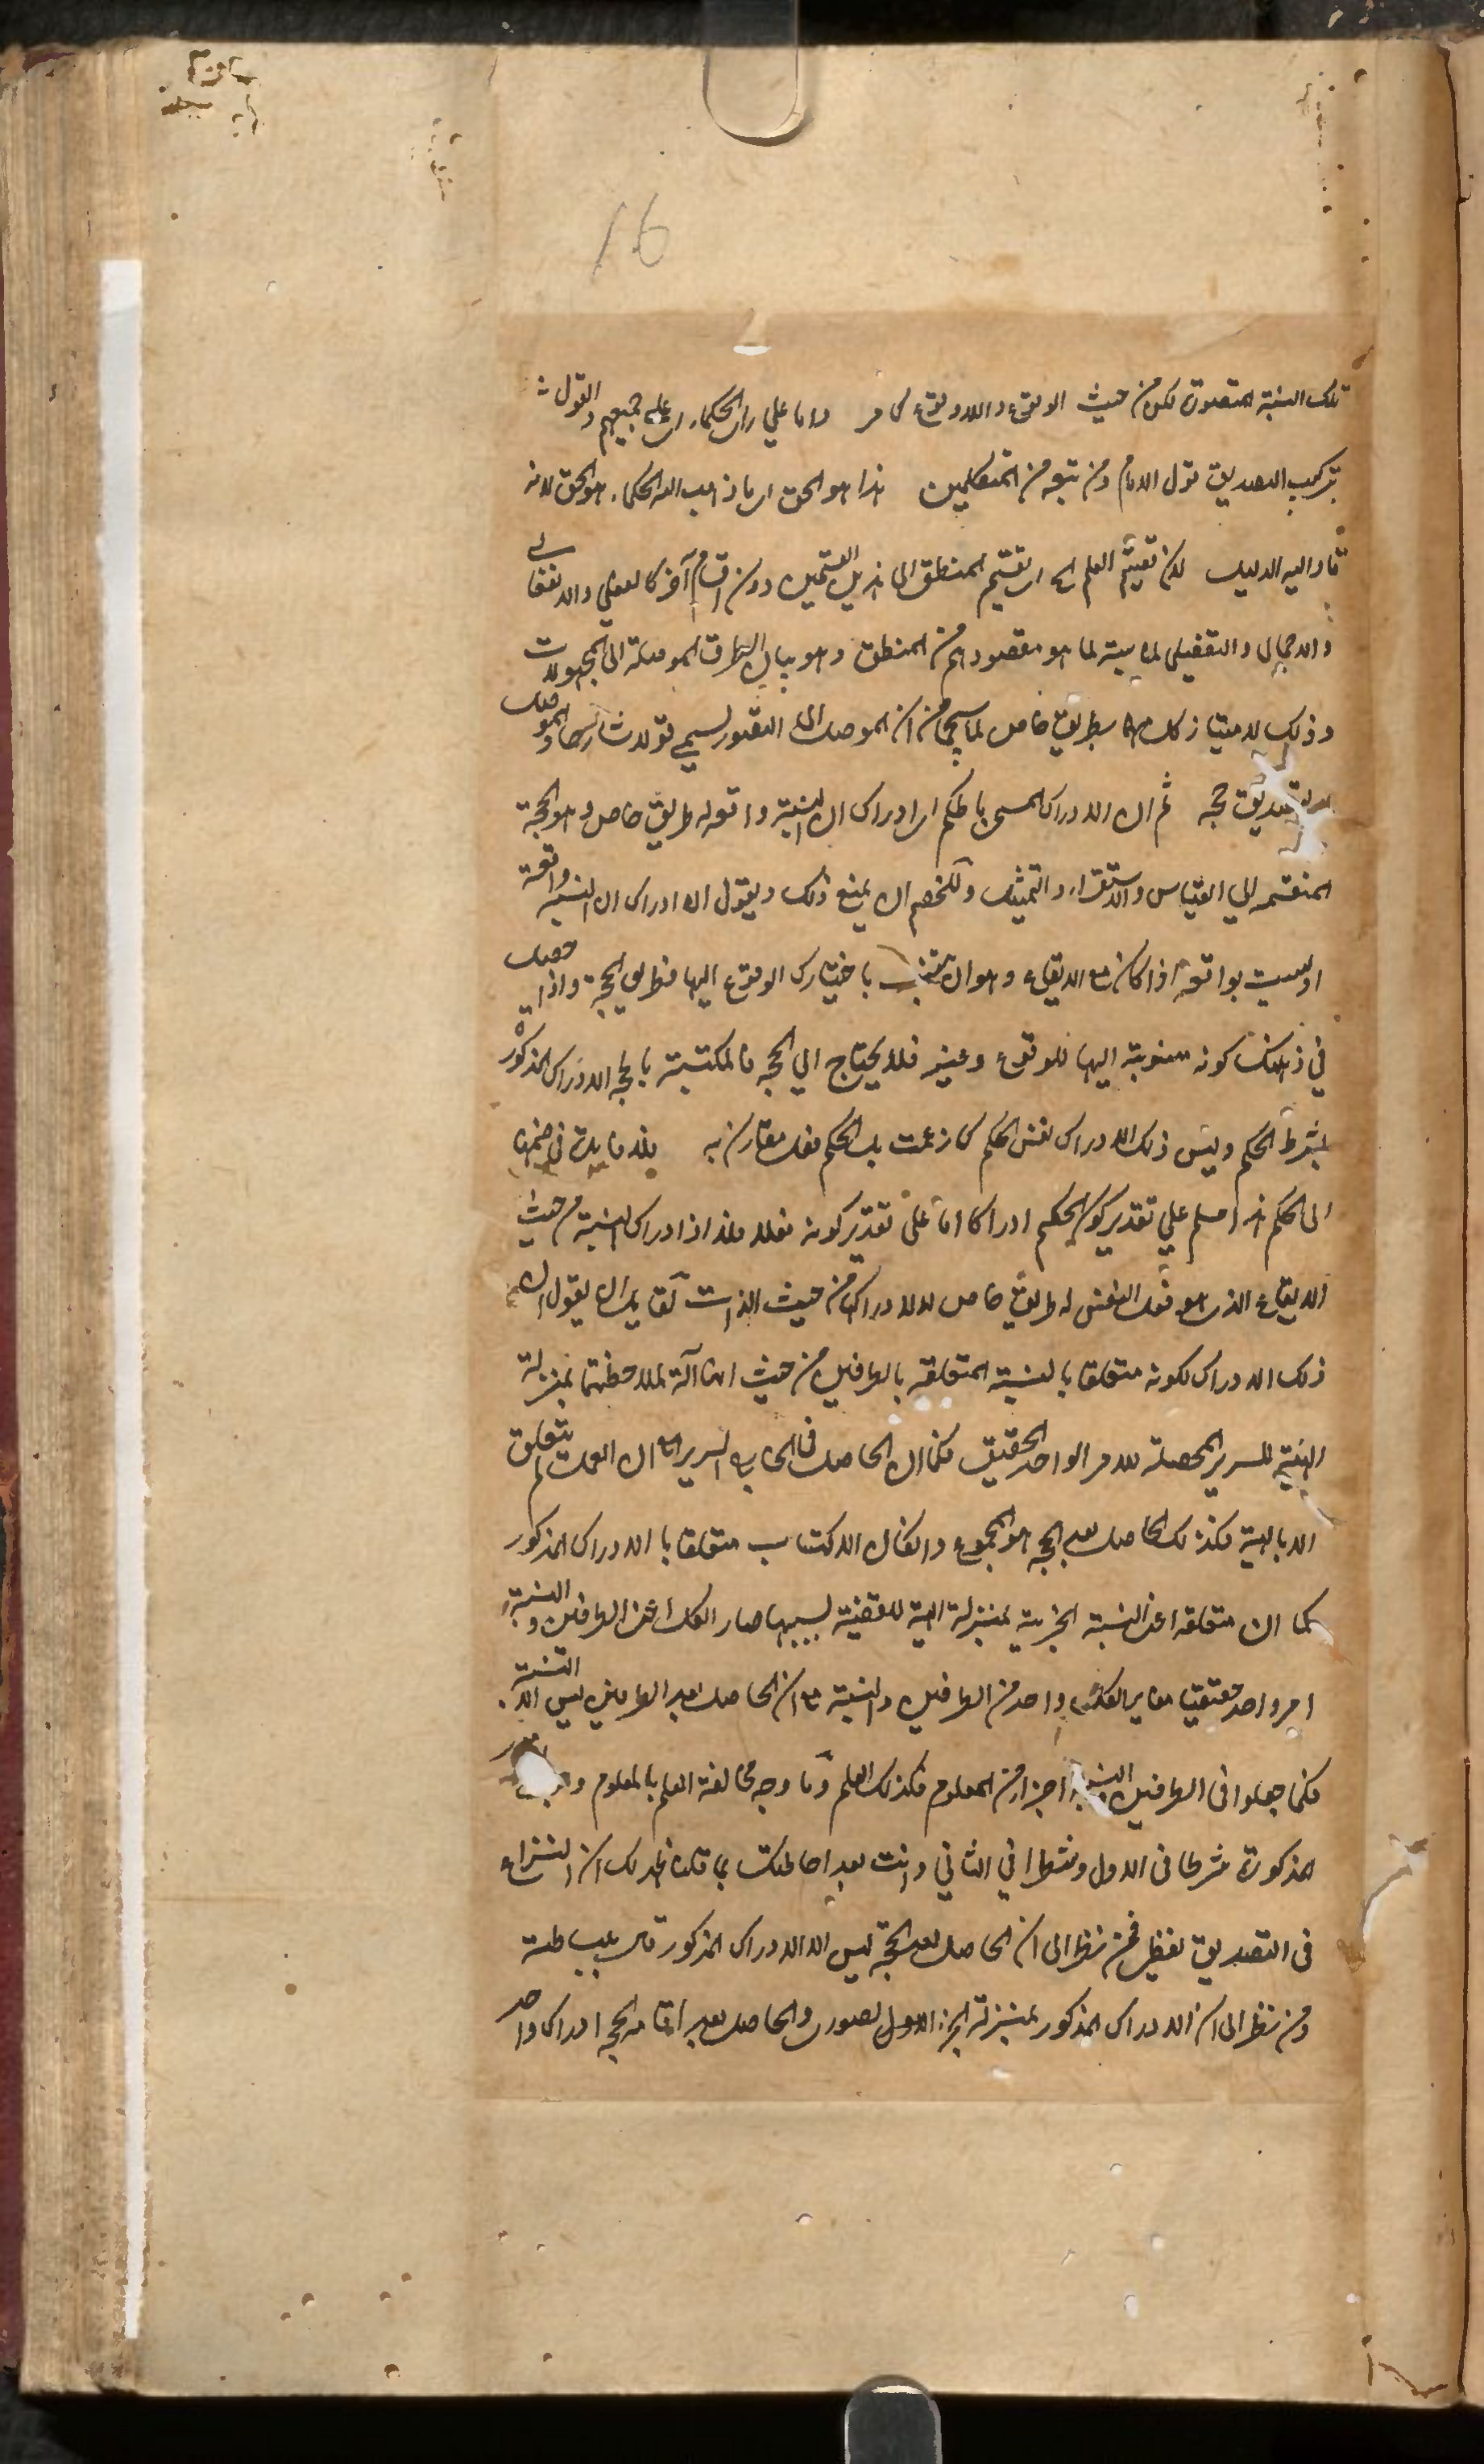 16
تلك النسبة المتصورة لكن من حيث الوقوع واللاوقوع كما مر واما على راى الحكماء اى على جميعهم والقول
بتركيب التصديق قول الامام ومن تبعه من المتكلمين هذا هو الحق اى ما ذهب اليه الحكماء هو الحق لانه
قاد اليه الدليل لان تقسيم العلم الخ اى تقسيم المنطق الى هذين القسمين دون اقسام آخر كالفعلي والانفعالى
والاجمالى والتفصيلى لمناسبته لما هو مقصودهم من المنطق وهو بيان الطرق الموصلة الى المجهولات
وذلك لامتياز كل منهما بطريق خاص لما سيجئ من ان الموصل الى التصور يسمى قولا شارحا والموصل
الى التصديق حجة ثم ان الادراك المسمى بالحكم اى ادراك ان النسبة واقعة له طريق خاص وهو الحجة
المنقسمة الى القياس والاستقراء والتمثيل وللخصم ان يمنع ذلك ويقول ان ادراك ان النسبة واقعة
او ليست بواقعة اذا كان مع الايقاع وهو ان تنسب باختيارك الوقوع اليها فطريق الحجة واذا حصل
في ذهنك كونه منسوبة اليها للوقوع وغيره فلا يحتاج الى الحجة فالمكتسبة بالحجة الادراك المذكور
بشرط الحكم وليس ذلك الادراك نفس الحكم كما زعمت بل الحكم فعل مقارن به فلا فايدة في ضمها
الى الحكم هذا مسلم على تقدير كون الحكم ادراكا اما على تقدير كونه فعلا فلا اذ ادراك النسبة من حيث
الايقاع الذى هو فعل النفس له طريق خاص لا للادراك من حيث الذات لقايل ان يقول ان
ذلك الادراك لكونه متعلقا بالنسبة المتعلقة بالطرفين من حيث انها آلة لملاحظتهما بمنزلة
الهيئة للسرير المحصلة للامر الواحد الحقيقى فكما ان الحاصل فى الخارج السرير مع ان العمل لم يتعلق
الا بالهيئة فكذلك الحاصل بعد الحجة هو المجموع وان كان الاكتساب متعلقا بالادراك المذكور
كما ان متعلقه اعنى النسبة الخبرية بمنزلة الهيئة للقضية بسببها صار الكل اعنى الطرفين والنسبة
امر واحد حقيقيا مغاير الكل واحد من الطرفين والنسبة مع ان الحاصل بعد الطرفين ليس الا النسبة
فكما جعلوا فى الطرفين النسبة اجزاء من المعلوم فكذلك العلم وما وجه مخالفة العلم بالمعلوم
المذكورة شرطا فى الاول وشطرا فى الثاني وانت بعد احاطتك بما قلنا ظهر لك ان النزاع
فى التصديق لفظى فمن نظر الى ان الحاصل بعد الحجة ليس الا الادراك المذكور قال ببساطته
ومن نظر الى ان الادراك المذكور بمنزلة الجزء الصورى والحاصل بعد اقامة الحجة ادراك واحد